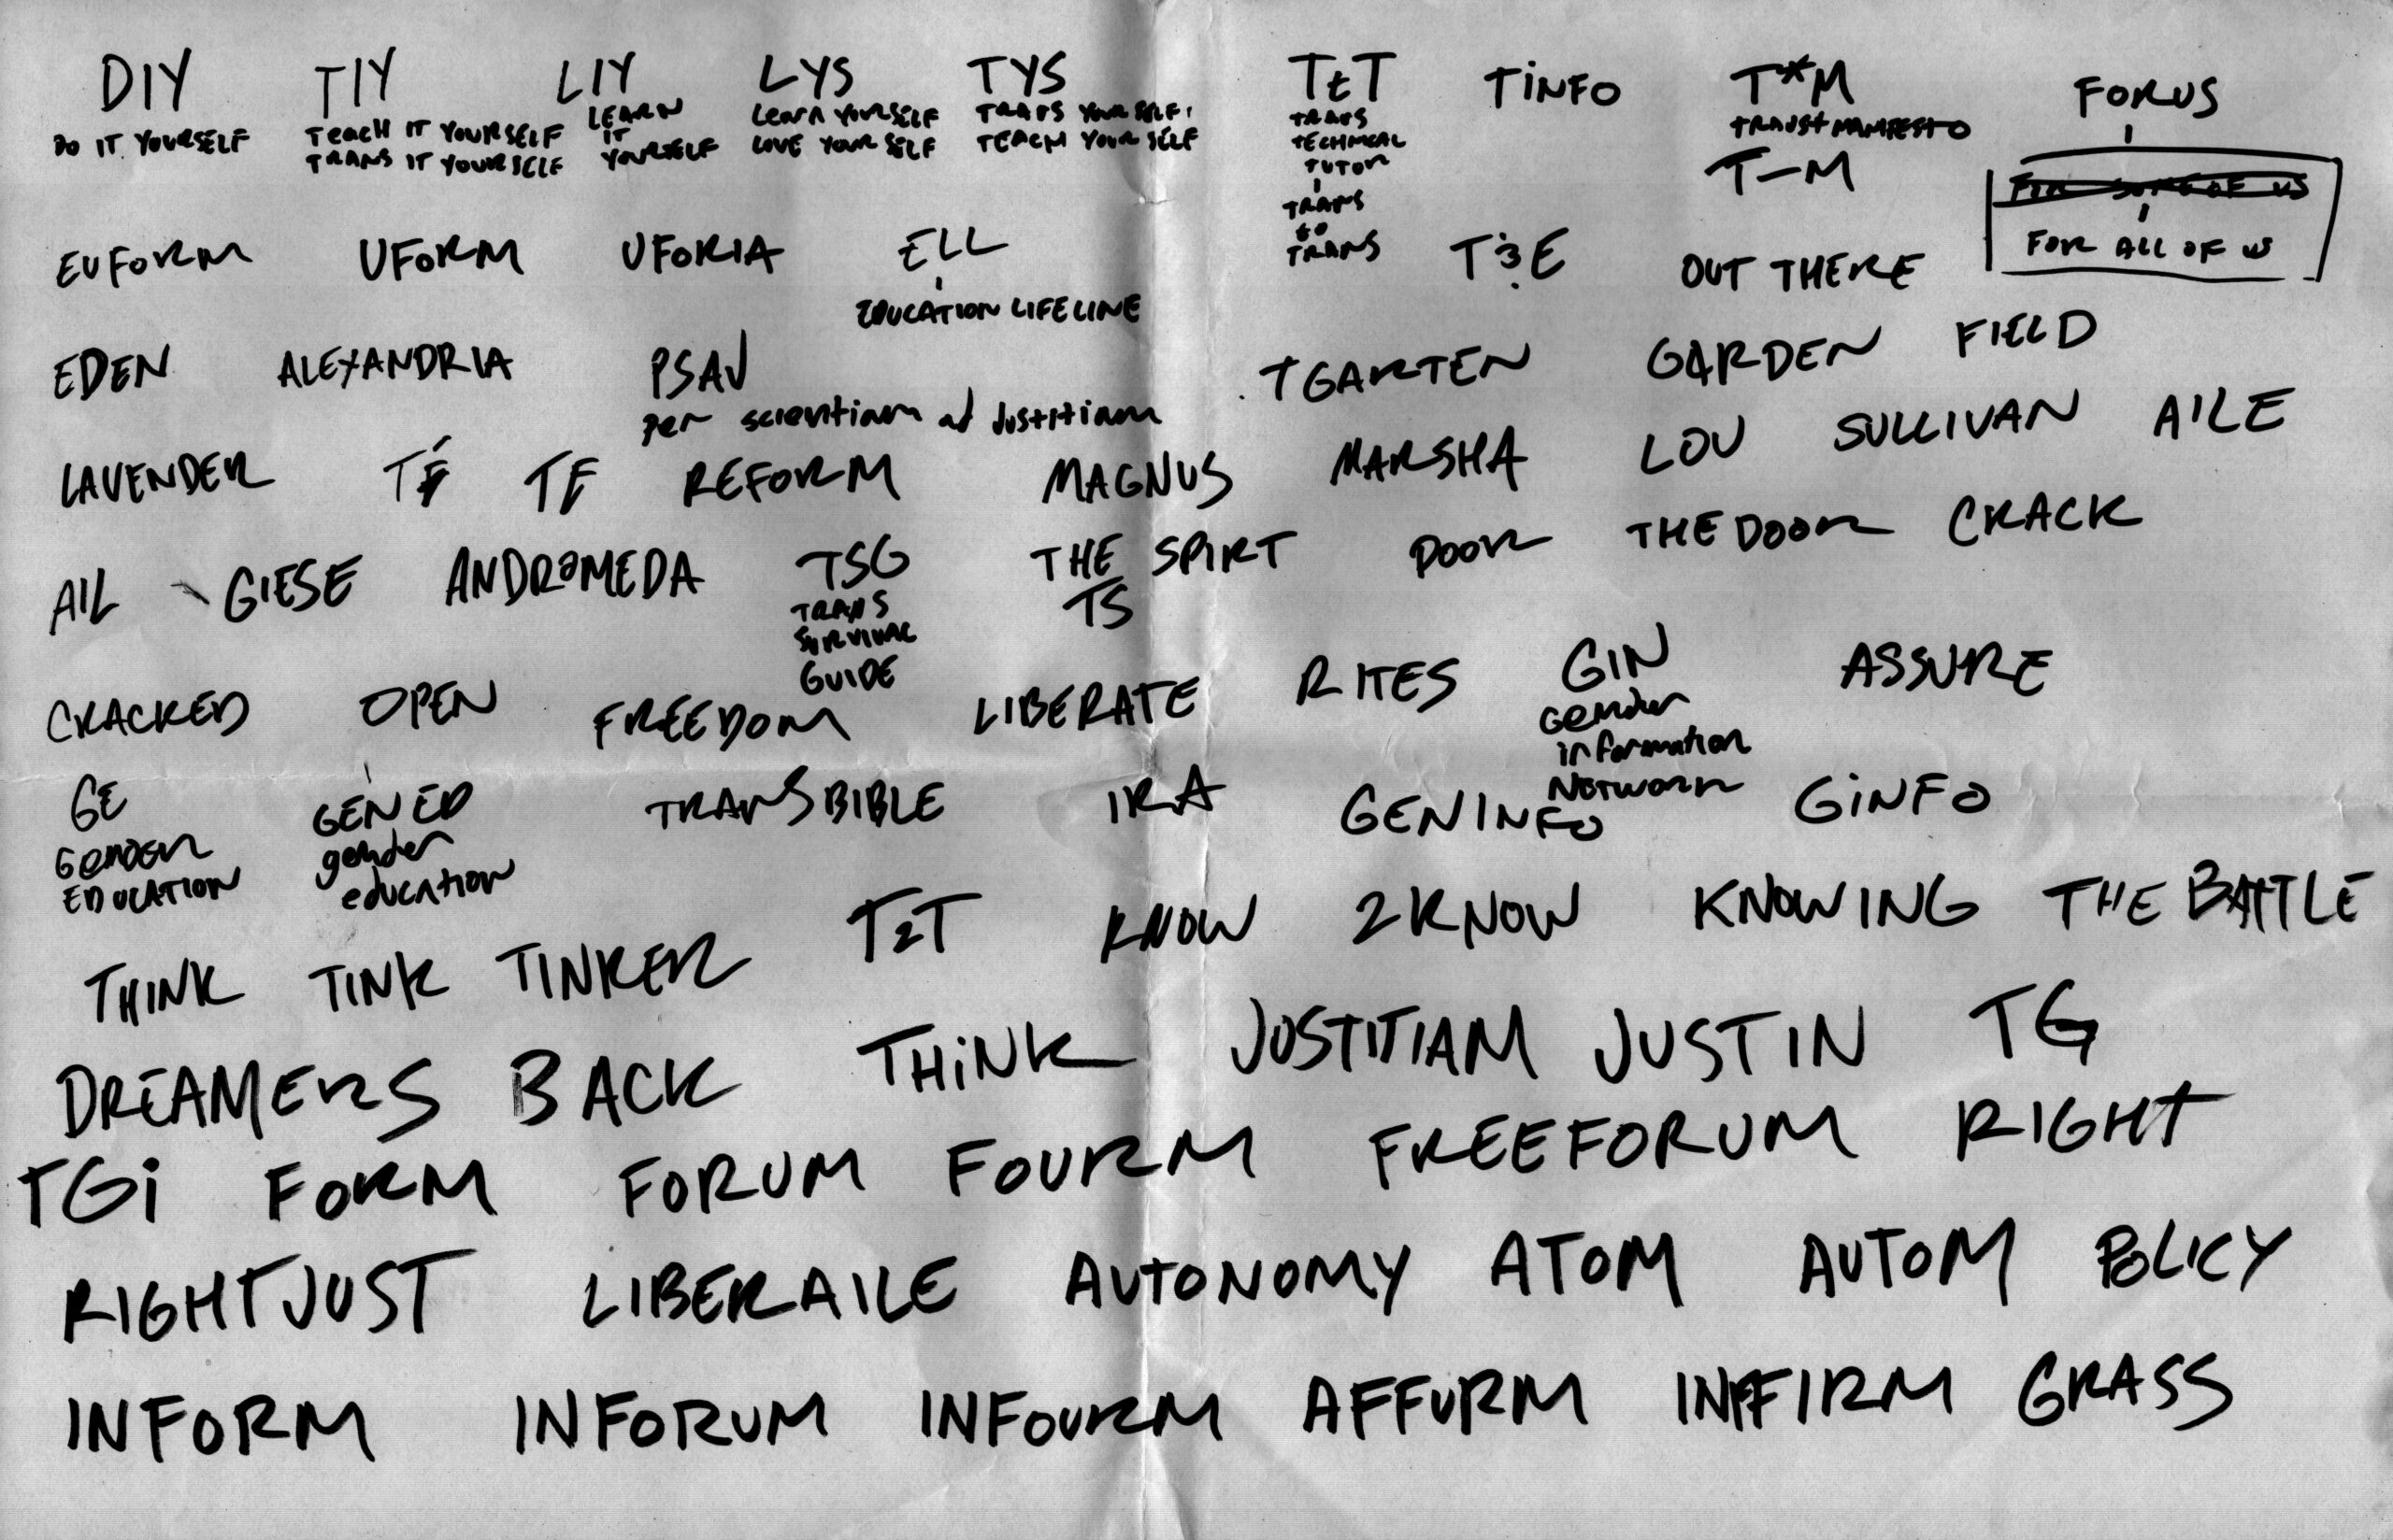 DIY TIY LIY LYS TYS TtT TiNFO T*M FORUS
DO IT YOURSELF
TEACH IT YOURSELF
TRANS IT YOURSELF
LEARN
IT
YOURSELF
LEARN YOURSELF
LOVE YOURSELF
TRANS YOURSELF
TEACH YOURSELF
TRANS
TECHNICAL
TUTOR
TRANS
to
TRANS
T-M
FOR SOME OF US
FOR ALL OF US
EUFORM UFORM UFORIA ELL T3E OUT THERE
EDUCATION LIFELINE
EDEN ALEXANDRIA PSAJ TGARTEN GARDEN FIELD
per scientiam ad justitiam
LAVENDER TÉ TE REFORM MAGNUS MARSHA LOU SULLIVAN AILE
AIL GIESE ANDROMEDA TSG THE SPIRT DOOR THEDOOR CRACK
TRANS
SURVIVAL
GUIDE
TS
CRACKED OPEN FREEDOM LIBERATE RITES GIN ASSURE
Gender
information
NETWORK
GE GENED TRANSBIBLE IRA GENINFO GiNFO
GENDER
EDUCATION
gender
education
THINK TINK TINKER T2T KNOW 2KNOW KNOWING THE BATTLE
DREAMERS BACK THiNK JUSTITIAM JUSTIN TG
TGi FORM FORUM FOURM FREEFORUM RIGHT
RIGHTJUST LIBERAILE AUTONOMY ATOM AUTOM POLICY
INFORM INFORUM INFOURM AFFURM INFFIRM GRASS